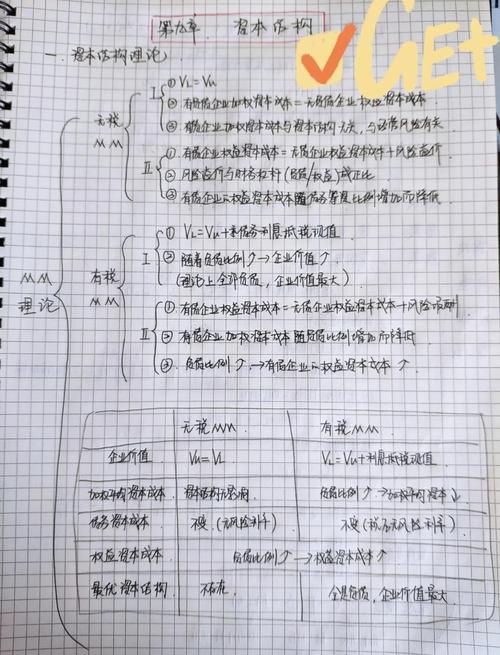 第九章 资本结构
GET
一. 资本结构理论
MM理论
无税MM
I
① VL=Vu
② 有负债企业加权资本成本=无负债企业权益资本成本
③ 有债企业加权资本成本与资本结构无关,与经营风险有关
II
① 有债企业权益资本成本=无债企业权益资本成本+风险溢价
② 风险溢价与财务杠杆(负债/权益)成正比
③ 有债企业权益资本成本随债务筹资比例增加而降低
有税MM
I
① VL=Vu+债务利息抵税现值
② 随着负债比例↑→企业价值↑
(理论上全部负债,企业价值最大)
II
① 有债企业权益资本成本=无债企业权益资本成本+风险报酬
② 有债企业加权资本成本随负债比例增加而降低
③. 负债比例↑→有债企业权益资本成本↑
无税MM 有税MM
企业价值 Vu=VL VL=Vu+利息抵税现值
加权平均资本成本 资本结构无影响 负债比例↑→加权平均资本↓
债务资本成本 不变(无风险利率) 不变(税后无风险利率)
权益资本成本 负债比例↑→权益资本成本↑
最优资本结构 不存在 全是负债,企业价值最大